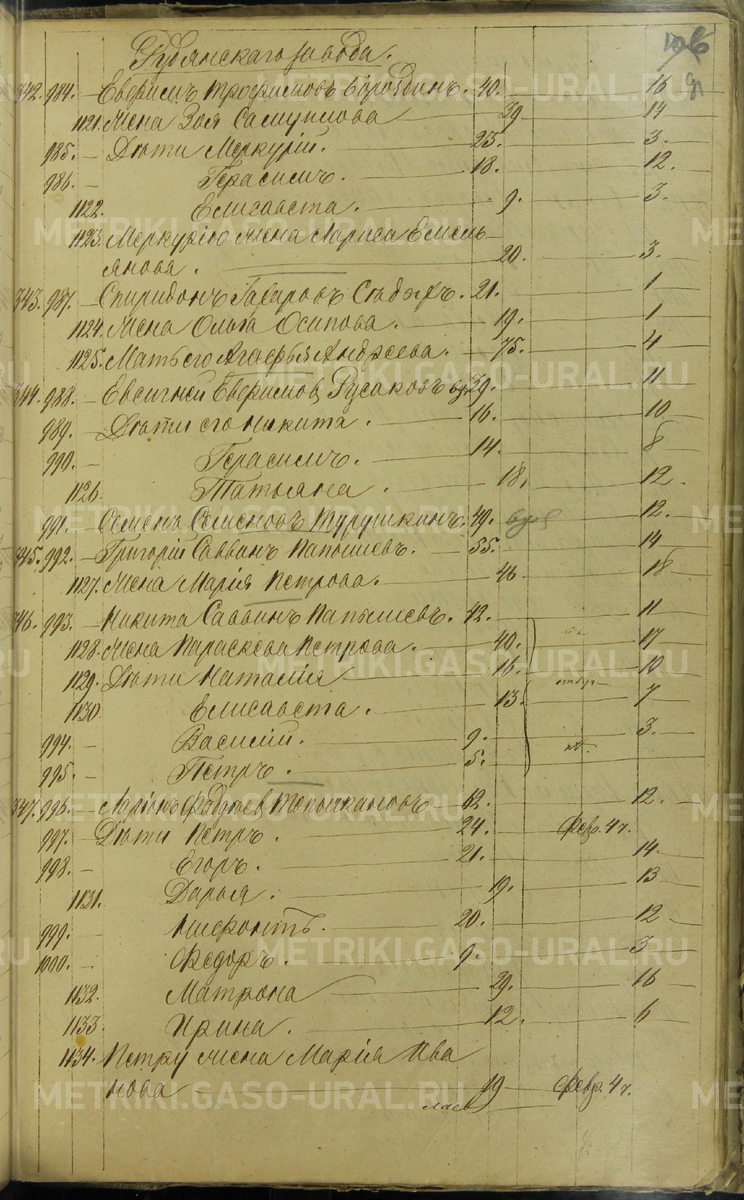 Рудянскаго завода.
106
91
342. 984. Еверимъ Трофимовъ Бороздинъ. 40. 16
1121. Жена Зоя Самуилова 39 14
985. Дѣти Меркурій. 23. 3.
986. Герасимъ. 18. 12.
1122. Елисавета. 9. 3.
1123. Меркурію жена Лариса Емель-
янова. 20. 3.
343. 987. Спиридонъ Захаровъ 21. 1
1124. Жена Ольга Осипова. 19. 1
1125. Мать его Агафья Андреева. 75. 4
344. 988. Евсигней Еверимов Русаковъ вд. 39. 11
989. Дѣти его Никита. 16. 10
990. Герасимъ. 14. 8
1126. Татьяна. 18. 12.
991. Семенъ Семеновъ Турушкинъ. 49. вдов 12.
345. 992. Григорій Саввинъ Папышевъ. 55. 14
1127. Жена Марія Петрова. 46 18
346. 993. Никита Саввинъ Папышевъ. 42. 11
1128. Жена Параскева Петрова. 40. 17
1129. Дѣти Наталія 16. 10
1130. Елисавета. 13. 7
994. Василій. 9. 3.
995. Петръ. 5.
347. 996. Ларіонъ 12.
997. Дѣти Петръ. 24. февр. 4 ч.
998. Егоръ. 21. 14
1131. Дарья. 19. 13
999. Ниѳонтъ. 20. 12
1000. Ѳедоръ. 9. 3
1132. Матрона 29. 16
1133. Ирина. 12. 6
1134. Петру жена Марія Ива
нова 19 февр. 4 ч.
METRIKI.GASO-URAL.RU